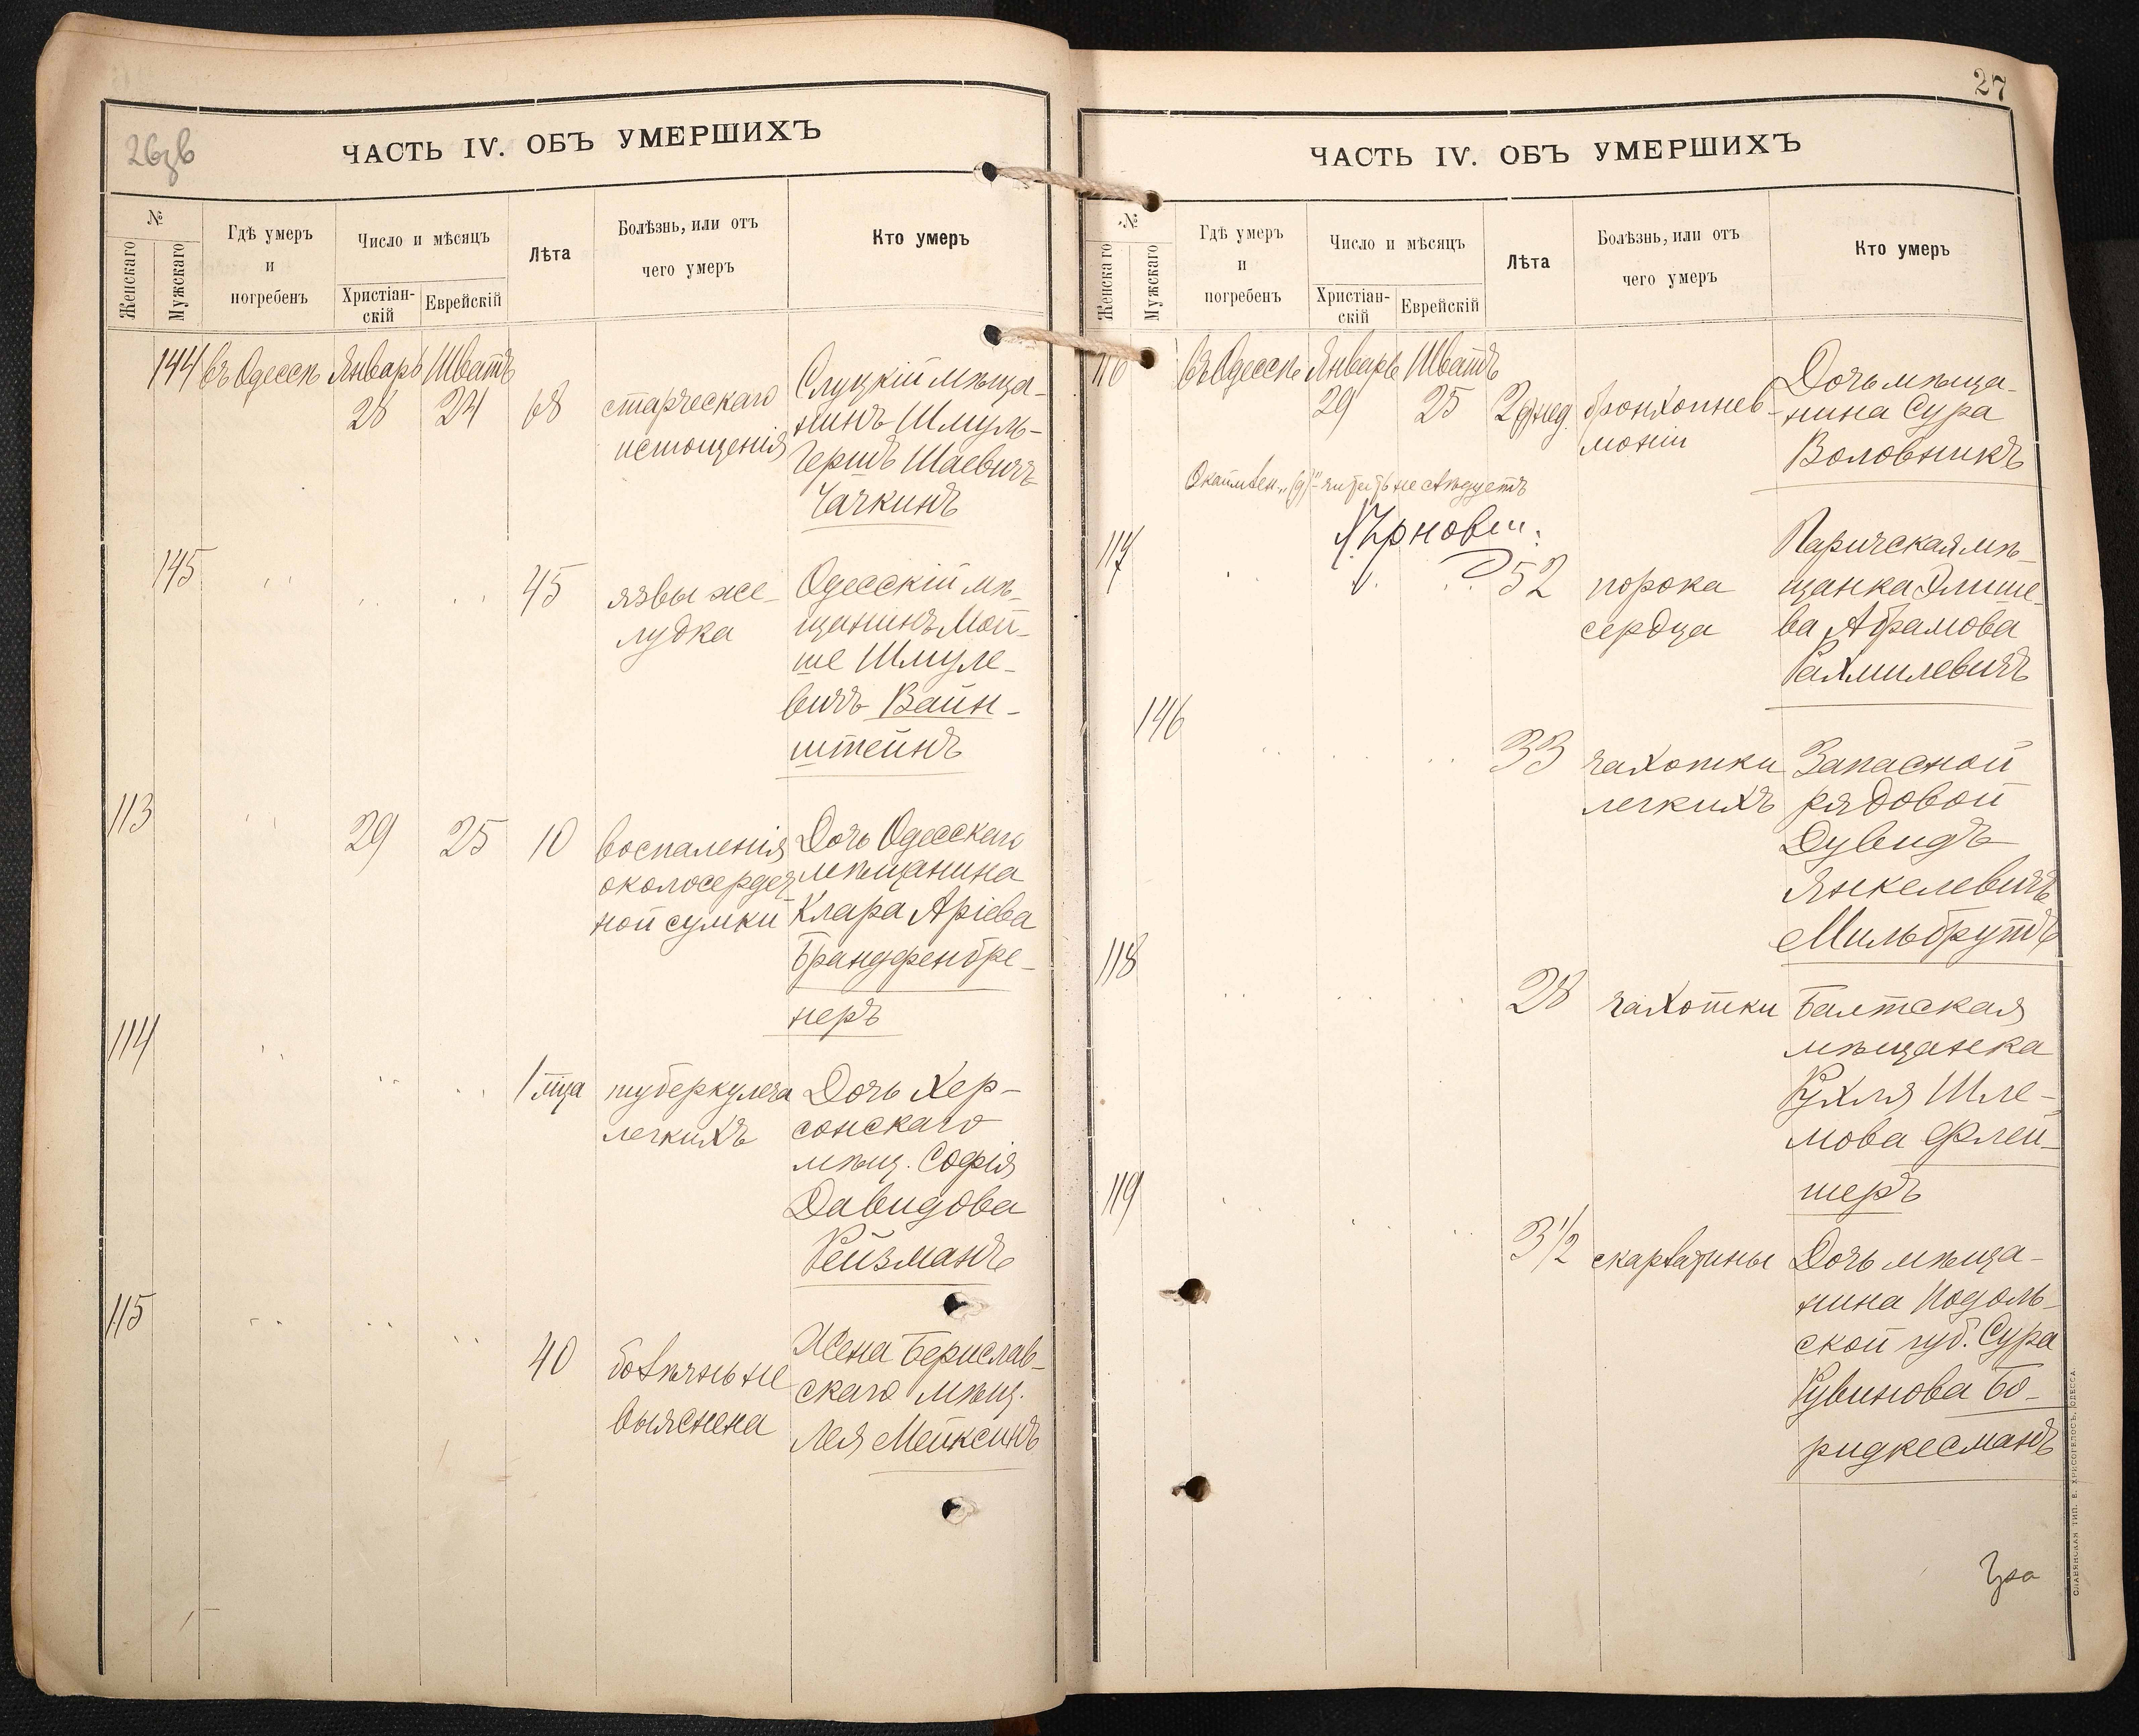 26зв
ЧАСТЬ IV. ОБЪ УМЕРШИХЪ
№
Женскаго
Мужскаго
Гдѣ умеръ
и
погребенъ
Число и мѣсяцъ
Христіан-
скій
Еврейскій
Лѣта
Болѣзнь, или отъ
чего умеръ
Кто умеръ
144 въ Одессѣ Январь Шватъ
28 24 68 старческаго
истощенія
Слуцкій мѣща-
нинъ Шмуль-
Гершъ Шаевичъ
Чачкинъ
145 45 язвы же-
лудка
Одесскій мѣ-
щанинъ Мой-
ше Шмуле-
вичъ Вайн-
штейнъ
113 29 25 10 воспаленія
околосердеч
ной сумки
Дочь Одесскаго
мѣщанина
Клара Аріева
Брандфенбре-
неръ
114 1 мца туберкулеза
легкихъ
Дочь Хер-
сонскаго
мѣщ. Софія
Давидова
Рейзманъ
115 40 болѣзнь не
выяснена
Жена Берислав-
скаго мѣщ.
Лея Мейксинъ
27
ЧАСТЬ IV. ОБЪ УМЕРШИХЪ
№
Женскаго
Мужскаго
Гдѣ умеръ
и
погребенъ
Число и мѣсяцъ
Христіан-
скій
Еврейскій
Лѣта
Болѣзнь, или отъ
чего умеръ
Кто умеръ
116 въ Одессѣ Январь Шватъ
29 25 2 (д) нед. бронхопнев-
моніи
Дочь мѣща-
нина Сура
Воловникъ
"(д)" читать не слѣдуетъ
117 52 порока
сердца
Паричская мѣ-
щанка Элише-
ва Абрамова
Рахмилевичъ
146 33 чахотки
легкихъ
Запасной
рядовой
Дувидъ
Янкелевичъ
Мильбрутъ
118 28 чахотки
Балтская
мѣщанка
Рухля Шле-
мова Флей-
шеръ
119 3 1/2 скарлатины
Дочь мѣща-
нина Подоль-
ской губ. Сура
Рувинова Бо-
ридкесманъ
СЛАВЯНСКАЯ ТИП. Е. ХРИСОГЕЛОСЪ, ОДЕССА.